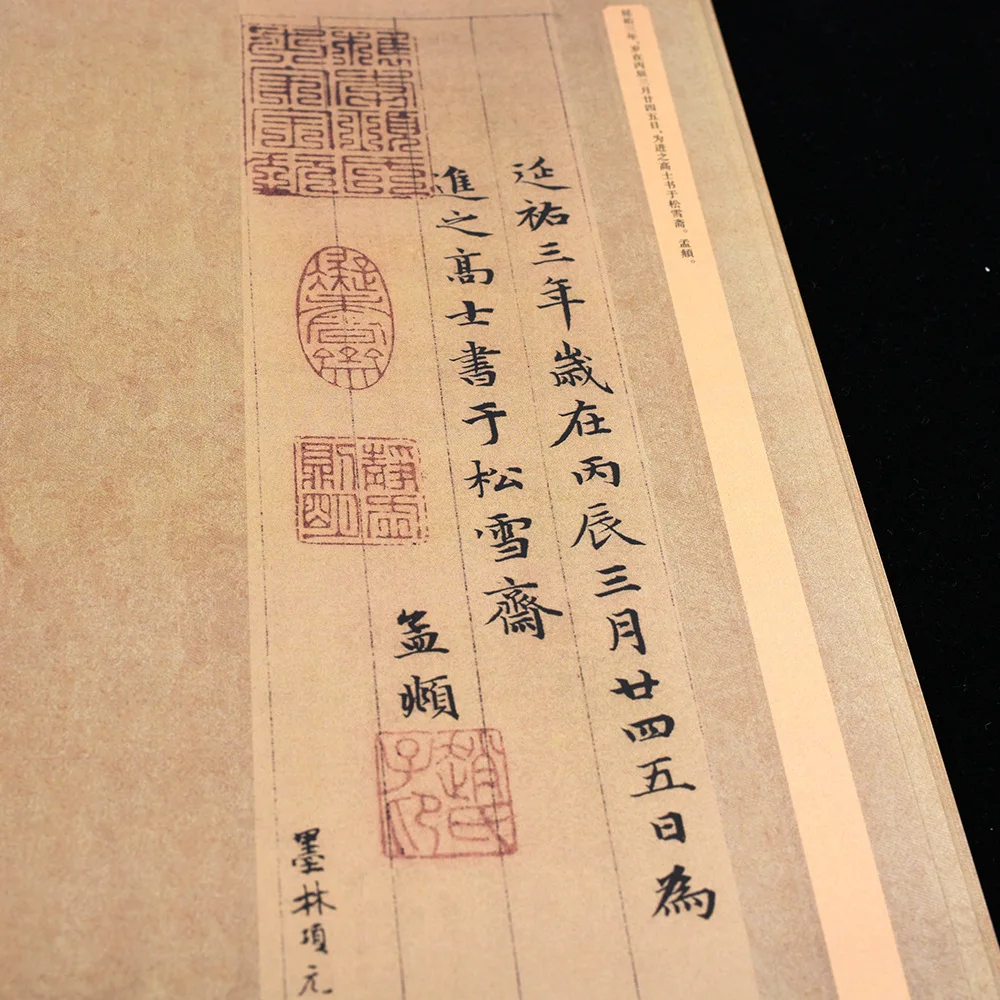 延祐三年，岁在丙辰三月廿四五日，为进之高士书于松雪斋。孟頫。
延祐三年歲在丙辰三月廿四五日為
進之高士書于松雪齋
孟頫
趙氏子昂
墨林項元